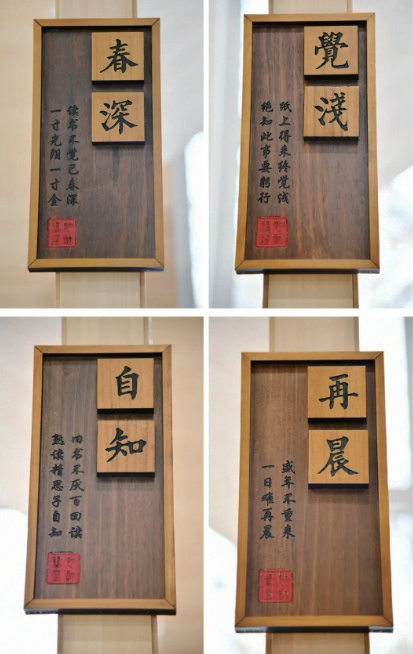 春
深
读书不觉已春深
一寸光阴一寸金
覺
淺
纸上得来终觉浅
绝知此事要躬行
自
知
旧书不厌百回读
熟读精思子自知
再
晨
盛年不重来
一日难再晨